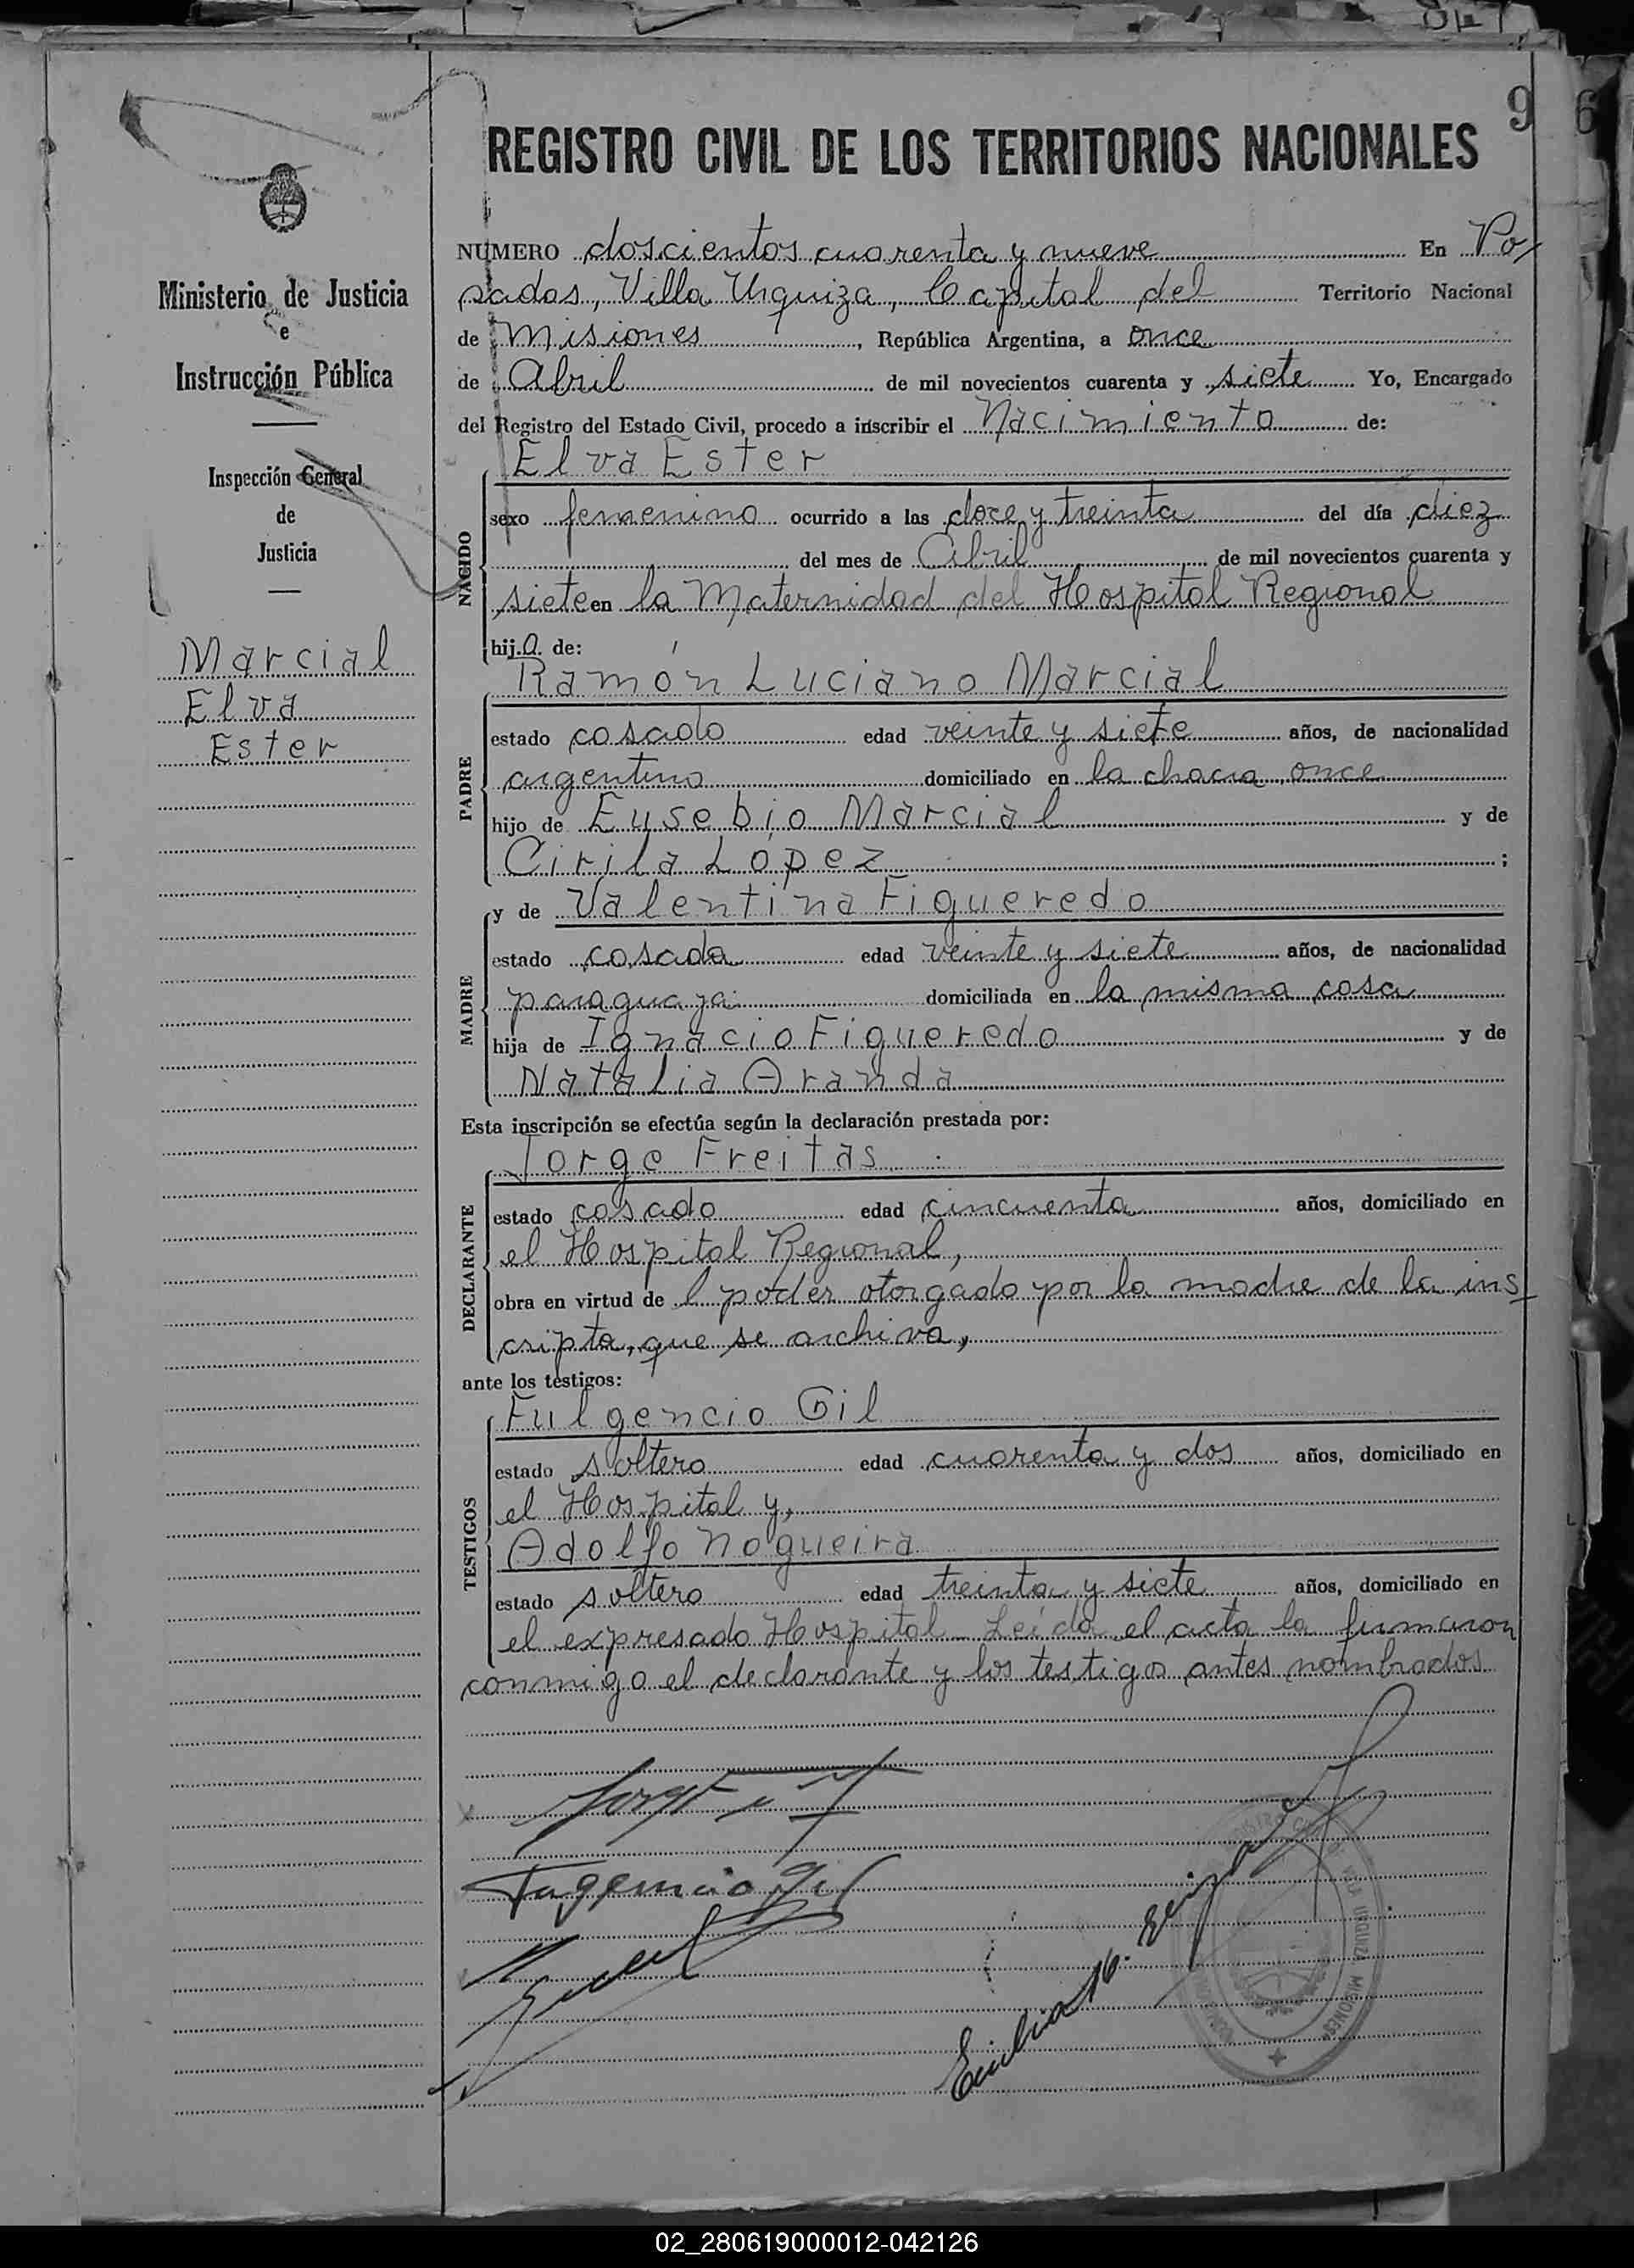 9
6
REGISTRO CIVIL DE LOS TERRITORIOS NACIONALES
Ministerio de Justicia
e
Instrucción Pública
Inspección General
de
Justicia
Marcial
Elva
Ester
NUMERO doscientos cuarenta y nueve En Po/
sadas, Villa Urquiza, Capital del Territorio Nacional
de Misiones, República Argentina, a once
de Abril de mil novecientos cuarenta y siete Yo, Encargado
del Registro del Estado Civil, procedo a inscribir el Nacimiento de:
Elva Ester
NACIDO
sexo femenino ocurrido a las doce y treinta del día diez
del mes de Abril de mil novecientos cuarenta y
siete en la Maternidad del Hospital Regional
hij.a. de:
Ramón Luciano Marcial
PADRE
estado casado edad veinte y siete años, de nacionalidad
argentino domiciliado en la chacra once
hijo de Eusebio Marcial y de
Cirila López ;
MADRE
y de Valentina Figueredo
estado casada edad veinte y siete años, de nacionalidad
paraguaya domiciliada en la misma casa
hija de Ignacio Figueredo y de
Natalia Aranda
Esta inscripción se efectúa según la declaración prestada por:
Jorge Freitas
DECLARANTE
estado casado edad cincuenta años, domiciliado en
el Hospital Regional,
obra en virtud de l poder otorgado por la madre de la ins
cripta, que se archiva,
ante los testigos:
Fulgencio Gil
TESTIGOS
estado soltero edad cuarenta y dos años, domiciliado en
el Hospital y,
Adolfo Nogueira
estado soltero edad treinta y siete años, domiciliado en
el expresado Hospital - Leída el acta la firmaron
conmigo el declarante y los testigos antes nombrados
VILLA URQUIZA MISIONES
02_280619000012-042126